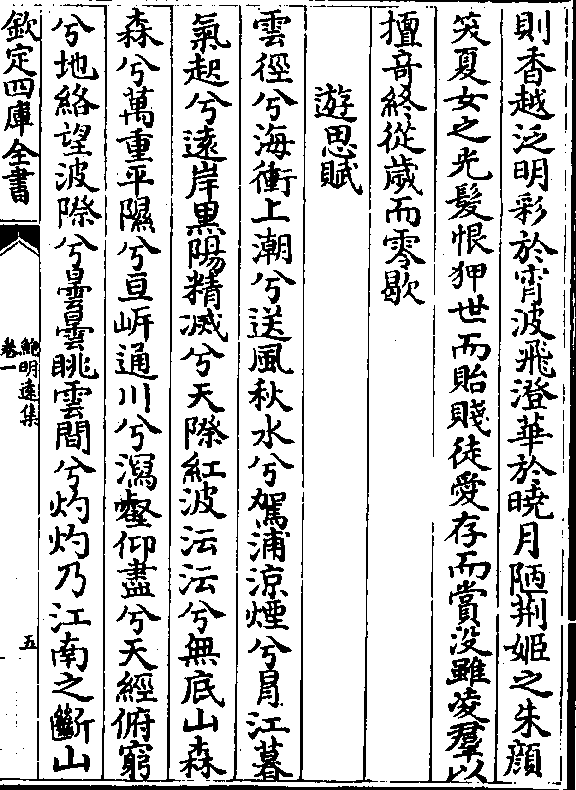 則香越泛明彩於宵波飛澄華於曉月陋荆姬之朱顔
笑夏女之光髮恨狎世而貽賤徒愛存而賞沒雖凌羣以
擅奇終從歲而零歇
遊思賦
雲徑兮海衝上潮兮送風秋水兮駕浦涼煙兮冐江暮
氣起兮遠岸黒陽精滅兮天際紅波沄沄兮無底山森
森兮萬重平隰兮亘岍通川兮瀉壑仰盡兮天經俯窮
兮地絡望波際兮曇曇眺雲間兮灼灼乃江南之斷山
欽定四庫全書
鮑明遠集
卷一
五